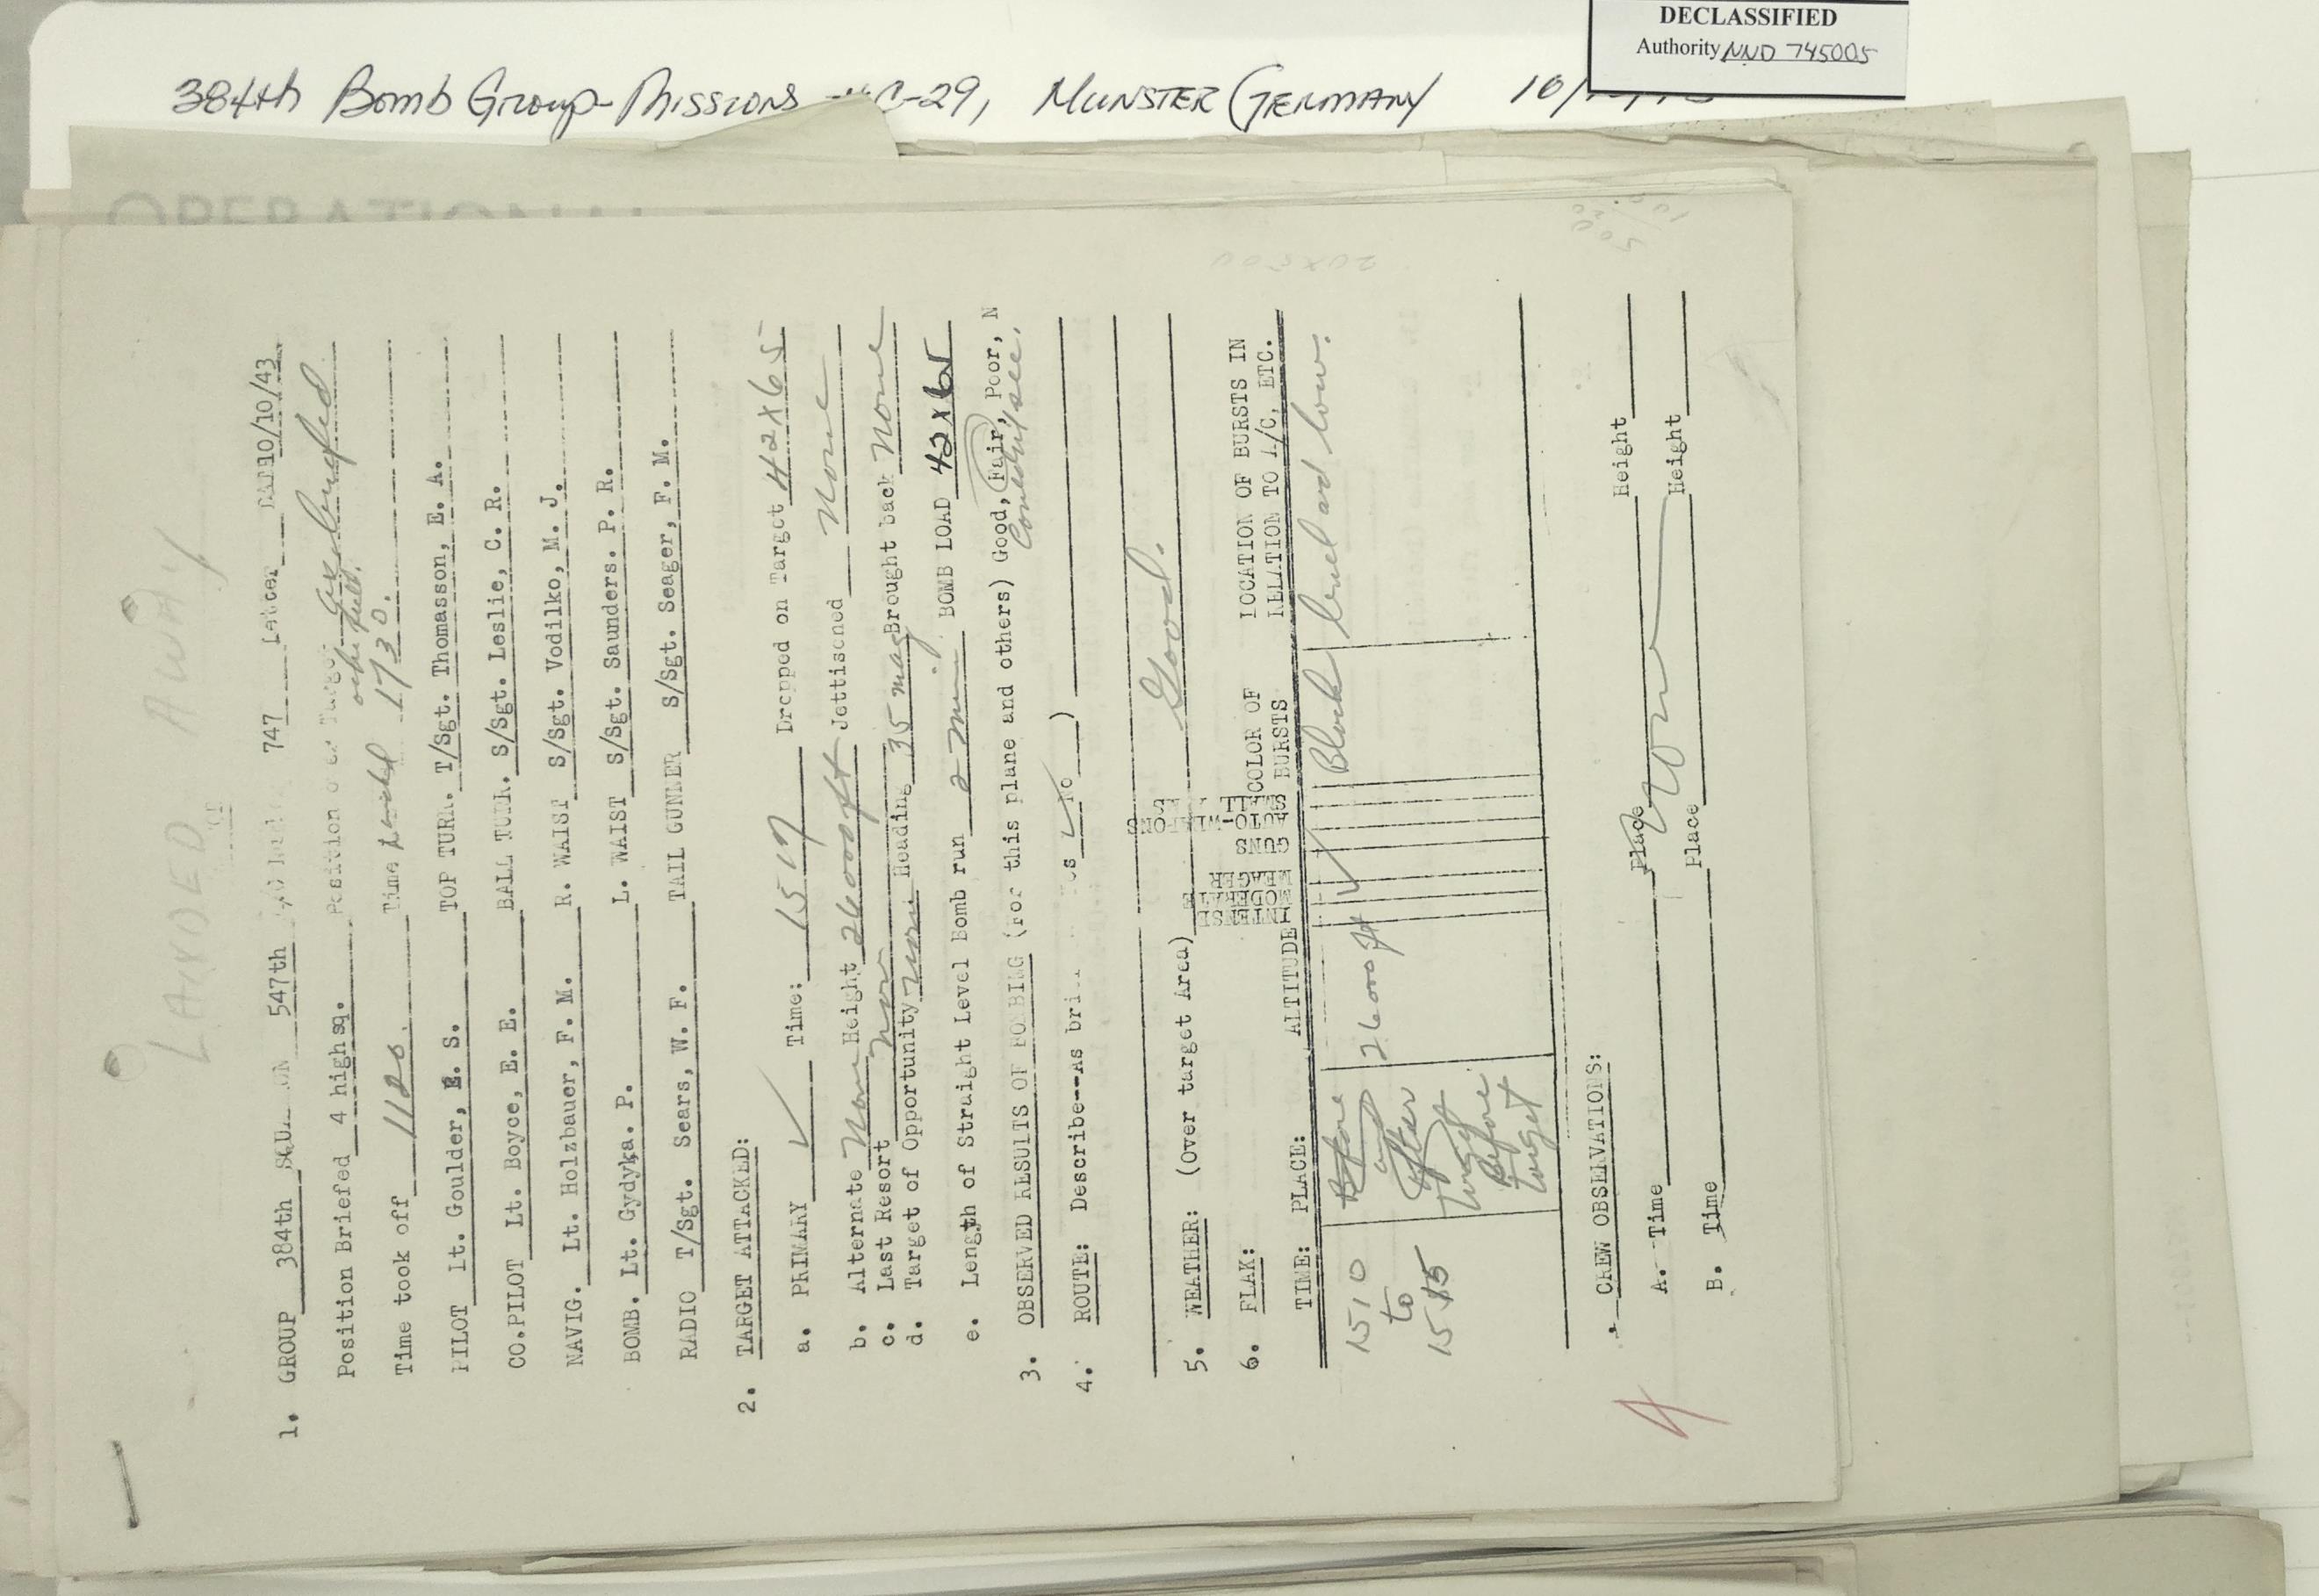 DECLASSIFIED
Authority NND 745005
384th Bomb Group - Missions -29, MUNSTER GERMANY 10/
OPERATIONAL
LANDED AWAY
1. GROUP 384th 547th 747 Letter 10/10/43
Position Briefed 4 high sq. Position over Target briefed
Time took off 1120 Time Landed 1730.
PILOT Lt. Goulder, E. S. TOP TURR. T/Sgt. Thomasson, E. A.
CO.PILOT Lt. Boyce, E. E. BALL TURR. S/Sgt. Leslie, C. R.
NAVIG. Lt. Holzbauer, F. M. R. WAIST S/Sgt. Vodilko, M. J.
BOMB. Lt. Gydyka. P. L. WAIST S/Sgt. Saunders. P. R.
RADIO T/Sgt. Sears, W. F. TAIL GUNNER S/Sgt. Seager, F. M.
2. TARGET ATTACKED:
a. PRIMARY ✓ Time: 1517 Dropped on Target 42X65
b. Alternate None Height 26000ft Jettisoned None
c. Last Resort None Heading 35 mag Brought back None
d. Target of Opportunity None
e. Length of Straight Level Bomb run 2 min. BOMB LOAD 42x65
3. OBSERVED RESULTS OF BOMBING (For this plane and others) Good, Fair, Poor, N
Couldn't see.
4. ROUTE: Describe--As bri Yes ✓ No )
5. WEATHER: (Over target Area) Good.
6. FLAK:
TIME: PLACE: ALTITUDE INTENSE MODERATE MEAGER GUNS AUTO-WEAPONS COLOR OF BURSTS LOCATION OF BURSTS IN RELATION TO A/C, ETC.
1510 to 1515 Before and After target Before target 26000 ft ✓ Black level and low.
CREW OBSERVATIONS:
A. Time Place None Height
B. Time Place Height
4